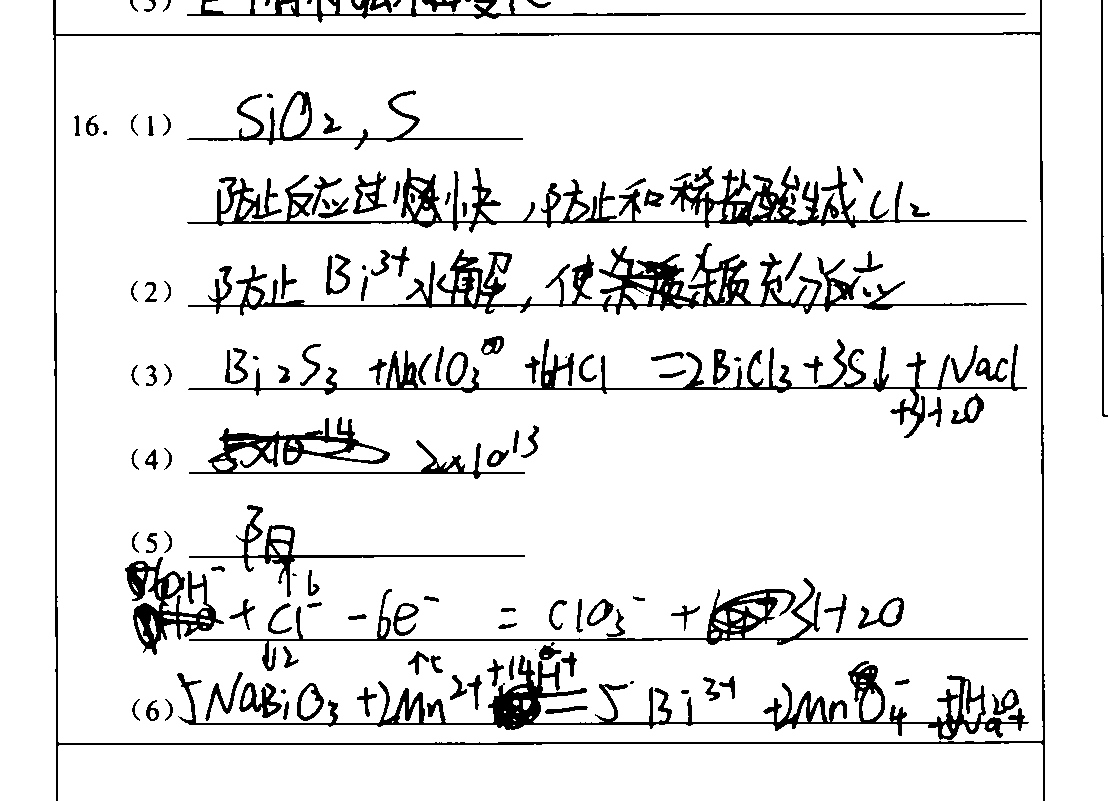 16. (1) SiO₂, S
防止反应过快,防止和稀盐酸生成Cl₂
(2) 防止Bi³⁺水解,使杂质充分反应
(3) Bi₂S₃ +NaClO₃ +6HCl =2BiCl₃+3S↓ + NaCl
+3H₂O
(4) 2×10¹³
(5) 阳
6OH⁻ + Cl⁻ - 6e⁻ = ClO₃⁻ + 3H₂O
(6) 5NaBiO₃ +2Mn²⁺ +14H⁺ = 5Bi³⁺ +2MnO₄⁻ +7H₂O
+5Na⁺